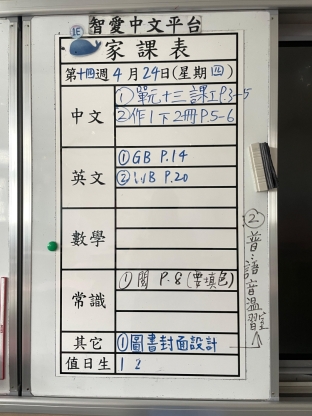 智愛中文平台
1E
家課表
第十四週 4月24日(星期四)
中文
①單元十三課工P.3-5
②作1下2冊P.5-6
英文
①GB P.14
②WB P.20
數學
常識
①閱 P.8(要填色)
其它
①圖書封面設計
值日生
1 2
②普:語音溫習